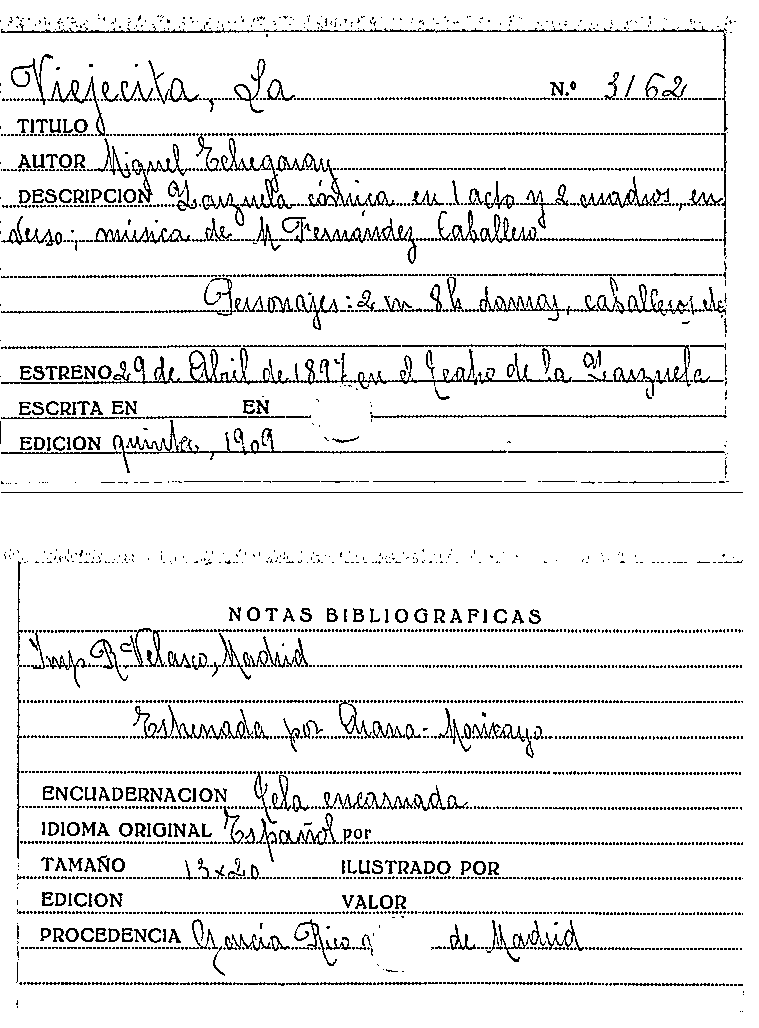 Viejecita, La
N.º 3162
TITULO
AUTOR Miguel Echegaray
DESCRIPCION Zarzuela cómica en 1 acto y 2 cuadros, en
verso; música de M Fernández Caballero
Personajes: 2 m 8h damas, caballeros etc
ESTRENO 29 de Abril de 1897 en el Teatro de la Zarzuela
ESCRITA EN EN
EDICION quinta, 1909
NOTAS BIBLIOGRAFICAS
Imp. R. Velasco, Madrid
Estrenada por Arana-
ENCUADERNACION Tela encarnada
IDIOMA ORIGINAL Español por
TAMAÑO 13x20 ILUSTRADO POR
EDICION VALOR
PROCEDENCIA García Rico de Madrid